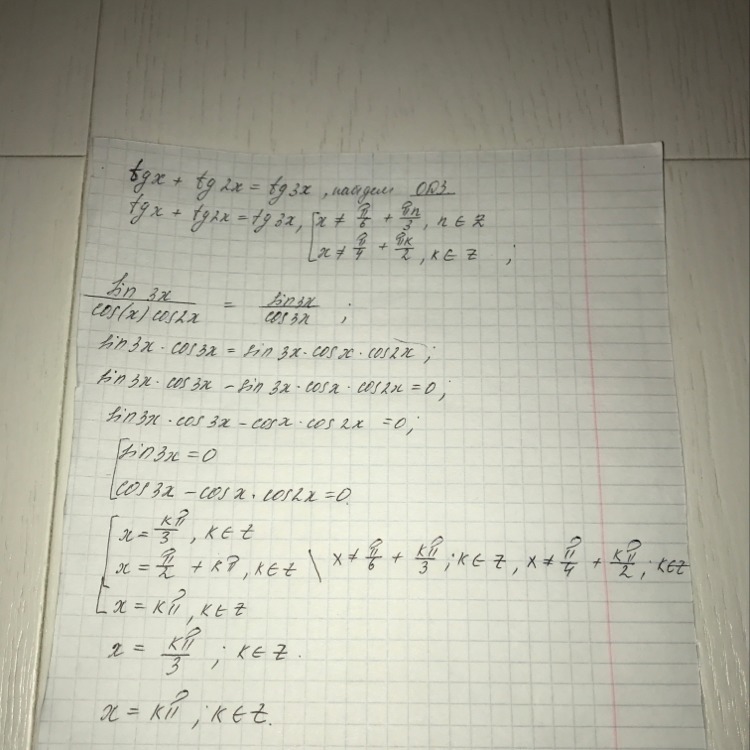 tgx + tg2x = tg3x, найдем ОДЗ
tgx + tg2x = tg3x, [x ≠ π/6 + πn/3, n ∈ Z
[x ≠ π/4 + πk/2, k ∈ Z ;
sin 3x / cos(x) cos2x = sin3x / cos3x ;
sin3x · cos3x = sin3x · cosx · cos2x ;
sin3x · cos3x − sin3x · cosx · cos2x = 0 ;
sin3x · cos3x − cosx · cos2x = 0 ;
[sin3x = 0
[cos3x − cosx · cos2x = 0.
[x = kπ/3, k ∈ Z
[x = π/2 + kπ, k ∈ Z \ x ≠ π/6 + kπ/3 ; k ∈ Z, x ≠ π/4 + kπ/2 ; k ∈ Z
[x = kπ, k ∈ Z
x = kπ/3 ; k ∈ Z.
x = kπ ; k ∈ Z.